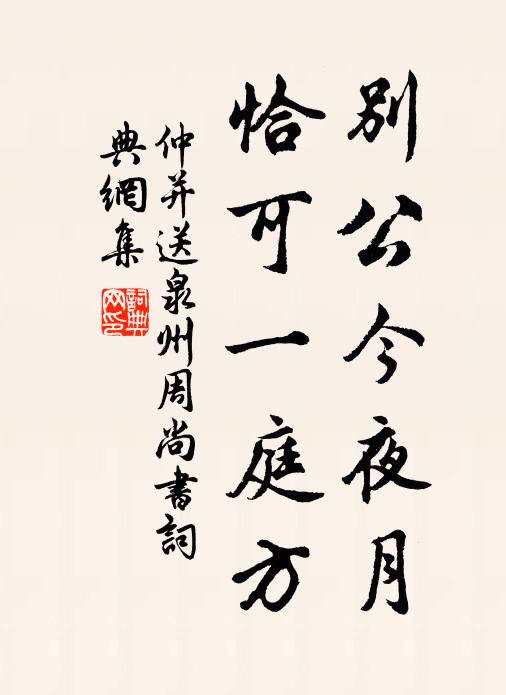 別公今夜月
恰可一庭方
仲并送泉州周尚書詞
典網集
詞典
网印